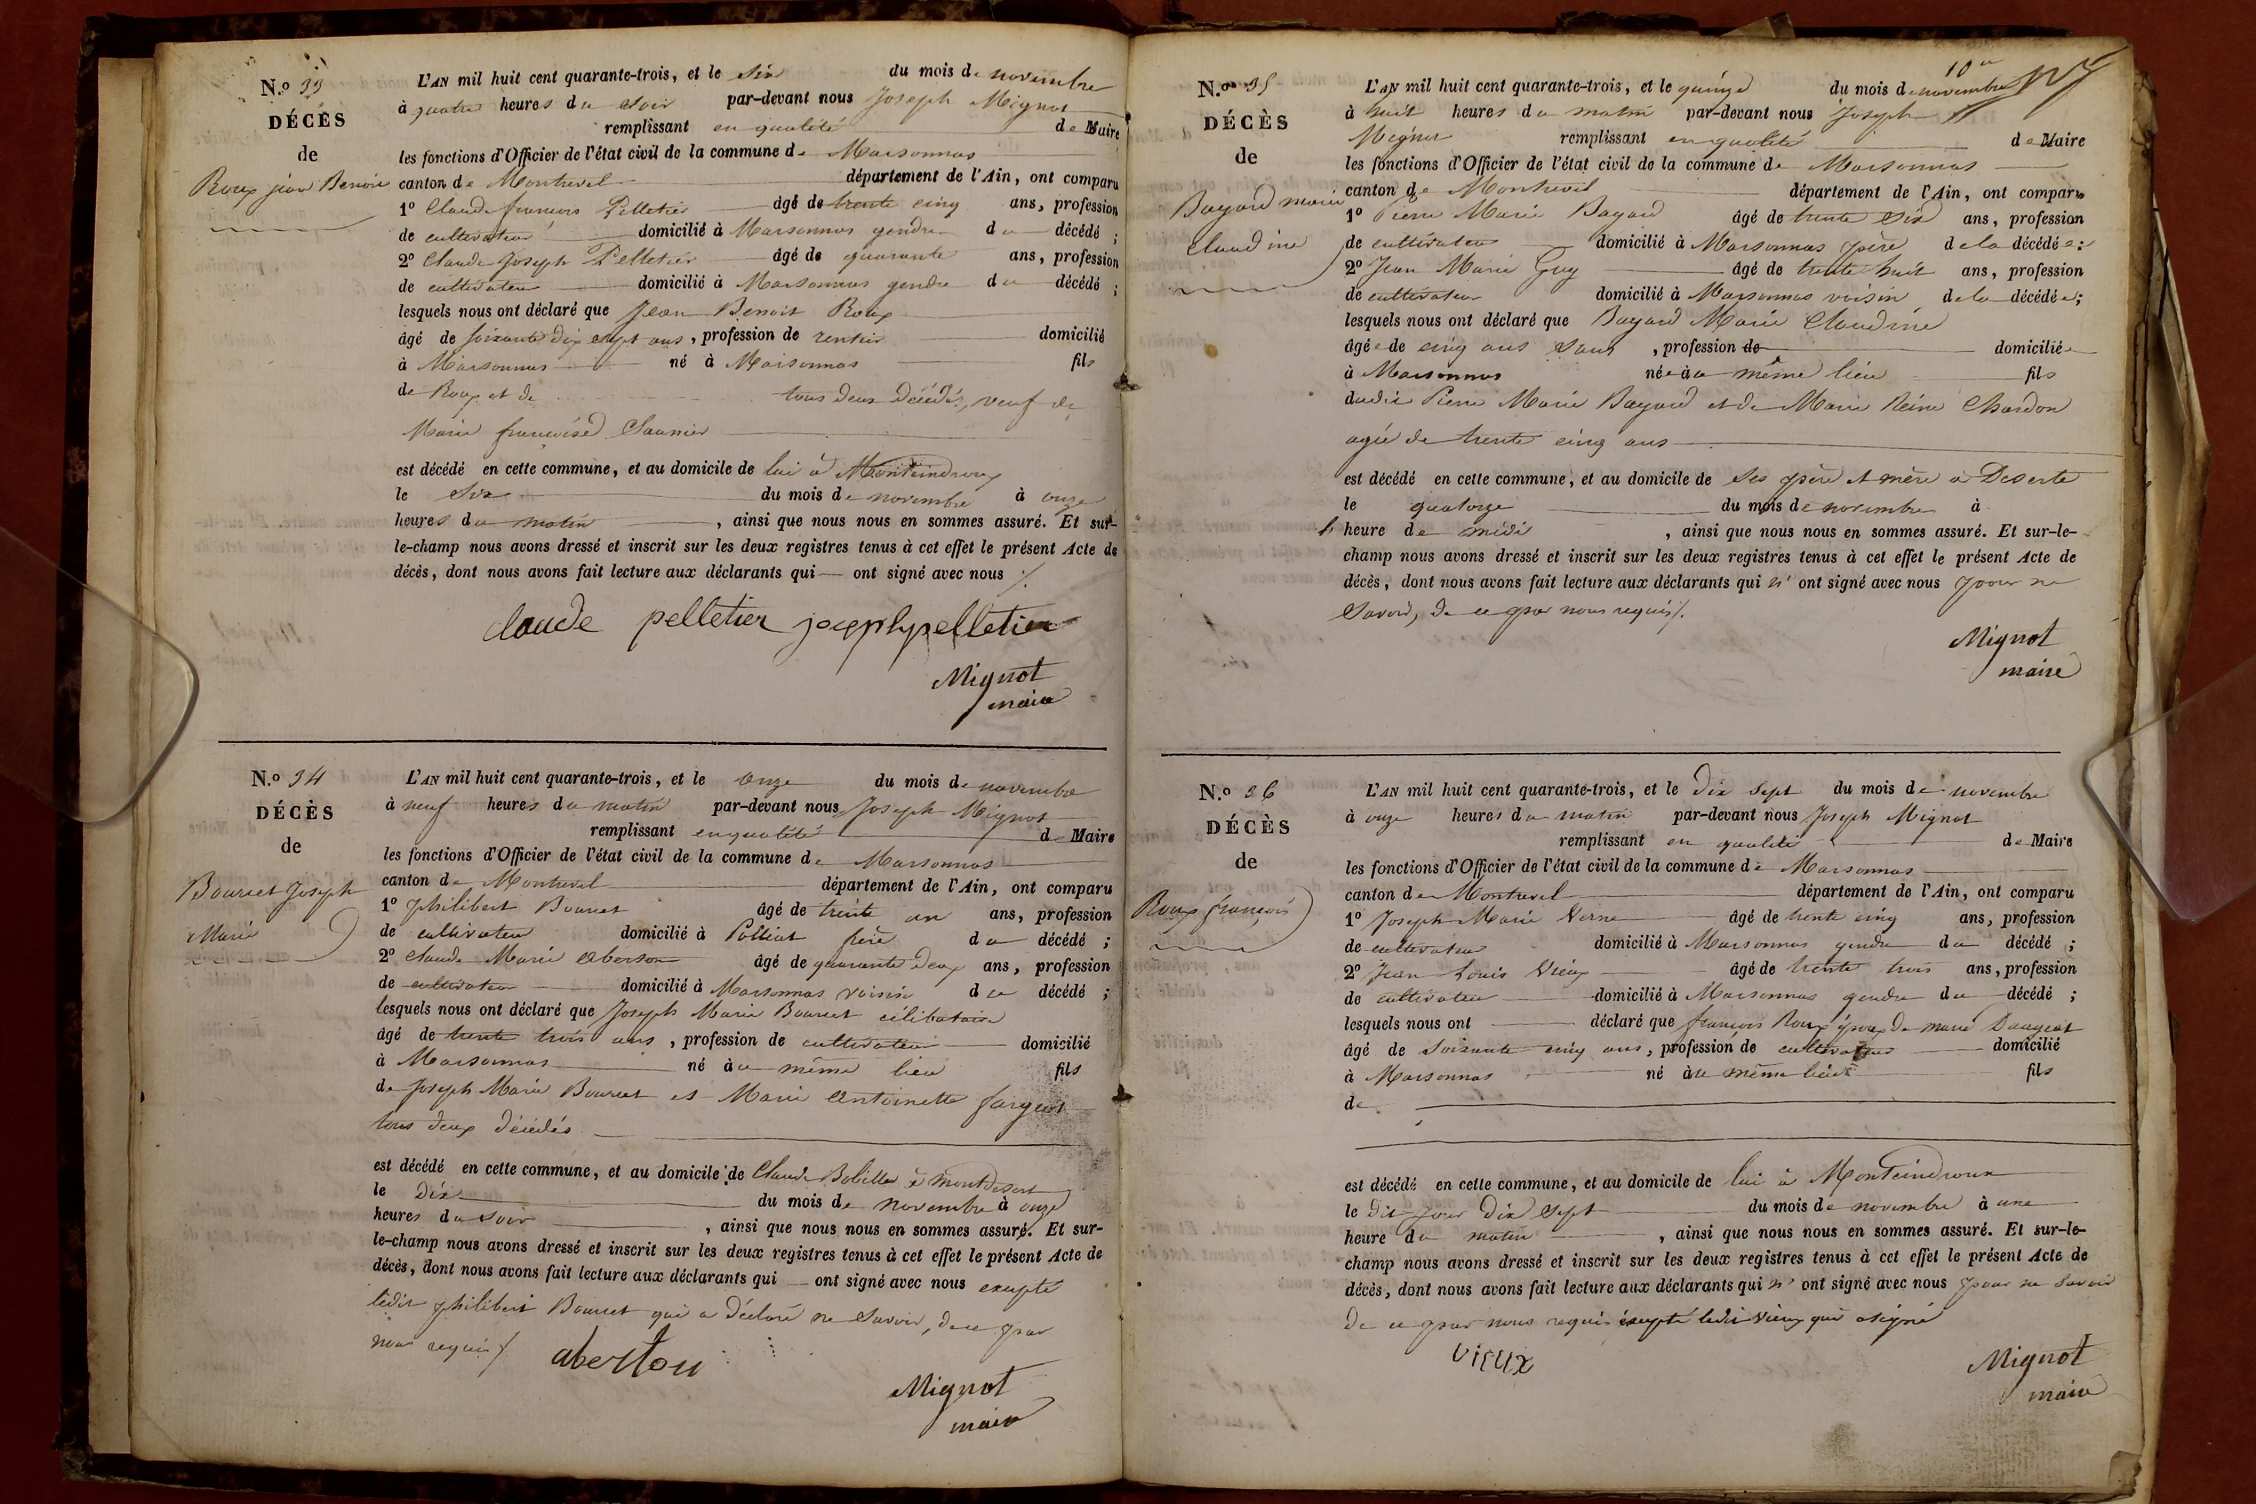 N.o 33
DÉCÈS
de
Roux jean Benoit
L'AN mil huit cent quarante-trois, et le Six du mois de novembre
à quatre heures du soir par-devant nous Joseph Mignot
remplissant en qualité de Maire
les fonctions d'Officier de l'état civil de la commune de Marsonnas
canton de Montrevel département de l'Ain, ont comparu
1° Claude françois Pelletier âgé de trente cinq ans, profession
de cultivateur domicilié à Marsonnas gendre du décédé ;
2° Claude Joseph Pelletier âgé de quarante ans, profession
de cultivateur domicilié à Marsonnas gendre du décédé ;
lesquels nous ont déclaré que Jean Benoit Roux
âgé de soixante Dix sept ans, profession de rentier domicilié
à Marsonnas né à Marsonnas fils
de Roux et de tous deux Décédés, veuf de
Marie françoise Saunier
est décédé en cette commune, et au domicile de lui à Monteindroux
le Six du mois de novembre à onze
heures du matin, ainsi que nous nous en sommes assuré. Et sur-
le-champ nous avons dressé et inscrit sur les deux registres tenus à cet effet le présent Acte de
décès, dont nous avons fait lecture aux déclarants qui — ont signé avec nous /.
claude pelletier joseph pelletier
Mignot
maire
N.o 34
DÉCÈS
de
Bourcet Joseph
Marie
L'AN mil huit cent quarante-trois, et le onze du mois de novembre
à neuf heures du matin par-devant nous Joseph Mignot
remplissant en qualité de Maire
les fonctions d'Officier de l'état civil de la commune de Marsonnas
canton de Montrevel département de l'Ain, ont comparu
1° philibert Bourcet âgé de trente un ans, profession
de cultivateur domicilié à Polliat frère du décédé ;
2° Claude Marie aberton âgé de quarante Deux ans, profession
de cultivateur domicilié à Marsonnas voisin du décédé ;
lesquels nous ont déclaré que Joseph Marie Bourcet célibataire
âgé de trente trois ans, profession de cultivateur domicilié
à Marsonnas né au même lieu fils
de Joseph Marie Bourcet et Marie antoinette fargeot
tous deux Décédés
est décédé en cette commune, et au domicile de Claude Bobillon à montdesert
le Dix du mois de novembre à onze
heures du soir, ainsi que nous nous en sommes assuré. Et sur-
le-champ nous avons dressé et inscrit sur les deux registres tenus à cet effet le présent Acte de
décès, dont nous avons fait lecture aux déclarants qui — ont signé avec nous excepté
ledit philibert Bourcet qui a Déclaré ne savoir, de ce par
nous requis /.
aberton
Mignot
maire
10e
N.o 35
DÉCÈS
de
Bayard marie
Claudine
L'AN mil huit cent quarante-trois, et le quinze du mois de novembre
à huit heures du matin par-devant nous Joseph
Mignot remplissant en qualité de Maire
les fonctions d'Officier de l'état civil de la commune de Marsonnas
canton de Montrevel département de l'Ain, ont comparu
1° Pierre Marie Bayard âgé de trente Six ans, profession
de cultivateur domicilié à Marsonnas père de la décédée ;
2° Jean Marie Guy âgé de trente huit ans, profession
de cultivateur domicilié à Marsonnas voisin de la décédée ;
lesquels nous ont déclaré que Bayard Marie Claudine
âgée de cinq ans sans, profession de domiciliée
à Marsonnas née au même lieu fils
dudit Pierre Marie Bayard et de Marie Reine Chardon
agée de trente cinq ans
est décédé en cette commune, et au domicile de ses père et mère à Deserte
le quatorze du mois de novembre à
l' heure de midi, ainsi que nous nous en sommes assuré. Et sur-le-
champ nous avons dressé et inscrit sur les deux registres tenus à cet effet le présent Acte de
décès, dont nous avons fait lecture aux déclarants qui n'ont signé avec nous pour ne
savoir, de ce par nous requis /.
Mignot
maire
N.o 36
DÉCÈS
de
Roux françois
L'AN mil huit cent quarante-trois, et le Dix sept du mois de novembre
à onze heures du matin par-devant nous Joseph Mignot
remplissant en qualité de Maire
les fonctions d'Officier de l'état civil de la commune de Marsonnas
canton de Montrevel département de l'Ain, ont comparu
1° Joseph Marie Verne âgé de trente cinq ans, profession
de cultivateur domicilié à Marsonnas gendre du décédé ;
2° Jean Louis Vieux âgé de trente trois ans, profession
de cultivateur domicilié à Marsonnas gendre du décédé ;
lesquels nous ont déclaré que françois Roux époux de marie Daugeat
âgé de soixante cinq ans, profession de cultivateur domicilié
à Marsonnas né au même lieu fils
de
est décédé en cette commune, et au domicile de lui à Monteindroux
le dit jour Dix Sept du mois de novembre à une
heure du matin, ainsi que nous nous en sommes assuré. Et sur-le-
champ nous avons dressé et inscrit sur les deux registres tenus à cet effet le présent Acte de
décès, dont nous avons fait lecture aux déclarants qui n'ont signé avec nous pour ne savoir
de ce par nous requis excepté ledit vieux qui a signé
vieux
Mignot
maire